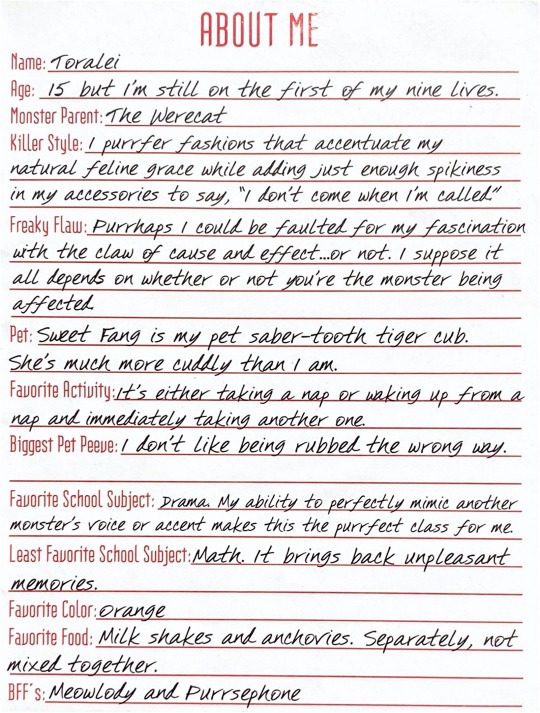 ABOUT ME
Name: Toralei
Age: 15 but I'm still on the first of my nine lives.
Monster Parent: The Werecat
Killer Style: I purrfer fashions that accentuate my
natural feline grace while adding just enough spikiness
in my accessories to say, "I don't come when I'm called."
Freaky Flaw: Purrhaps I could be faulted for my fascination
with the claw of cause and effect...or not. I suppose it
all depends on whether or not you're the monster being
affected.
Pet: Sweet Fang is my pet saber-tooth tiger cub.
She's much more cuddly than I am.
Favorite Activity: It's either taking a nap or waking up from a
nap and immediately taking another one.
Biggest Pet Peeve: I don't like being rubbed the wrong way.
Favorite School Subject: Drama. My ability to perfectly mimic another
monster's voice or accent makes this the purrfect class for me.
Least Favorite School Subject: Math. It brings back unpleasant
memories.
Favorite Color: Orange
Favorite Food: Milk shakes and anchovies. Separately, not
mixed together.
BFF's: Meowlody and Purrsephone